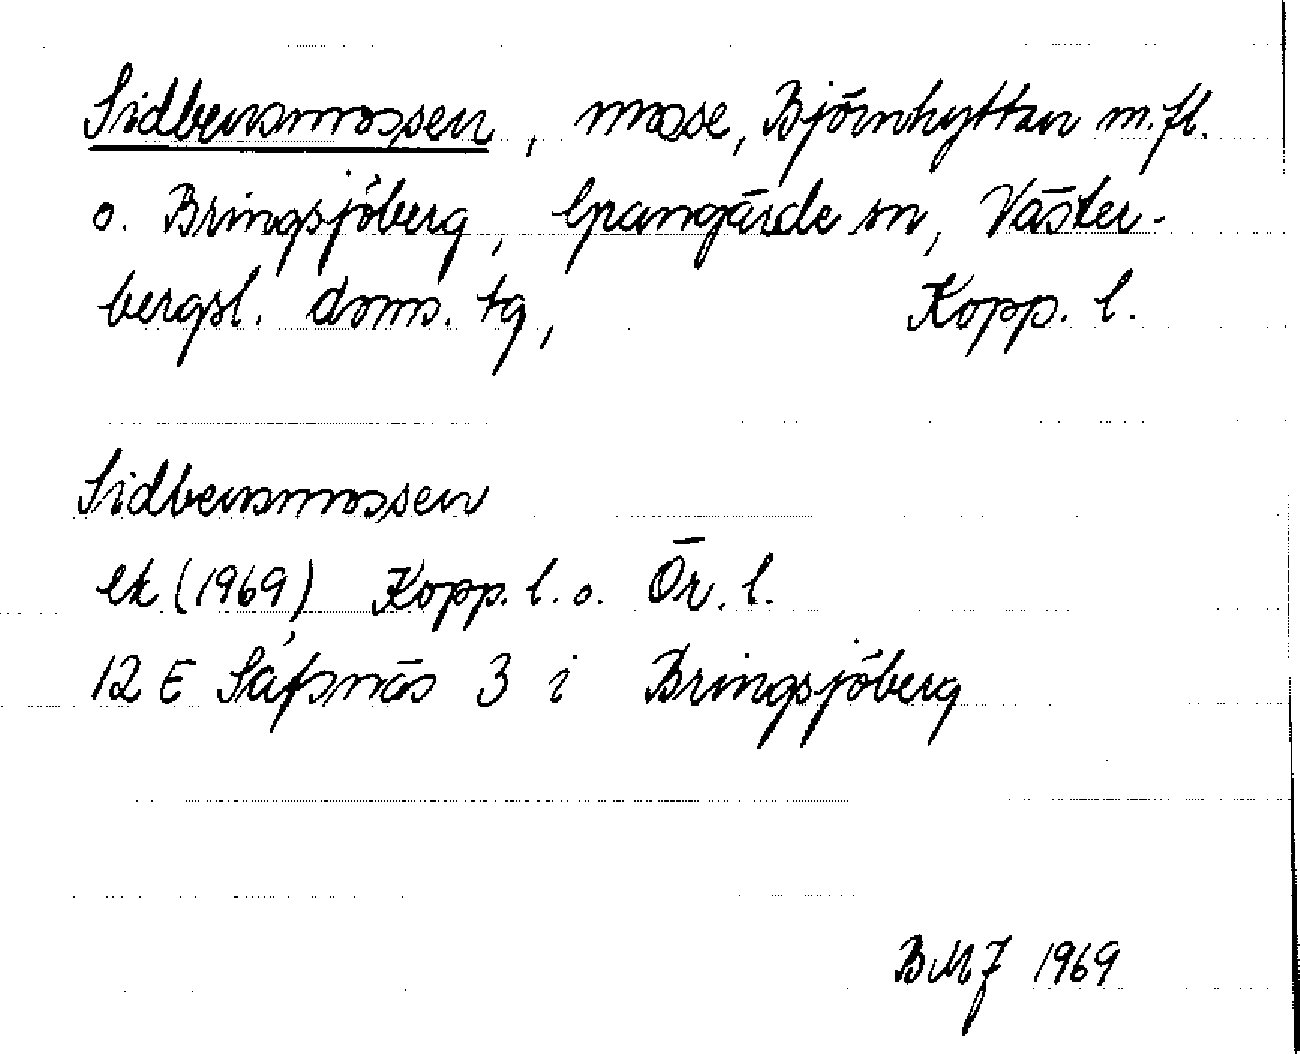 Sidbensmossen, mosse, Björnhyttan m.fl.
o. Bringsjöberg, Grangärde sn, Väster-
bergsl. doms. tg, Kopp. l.
Sidbensmossen
ek (1969) Kopp. l. o. Ör. l.
12 E Säfsnäs 3 i Bringsjöberg
BMJ 1969